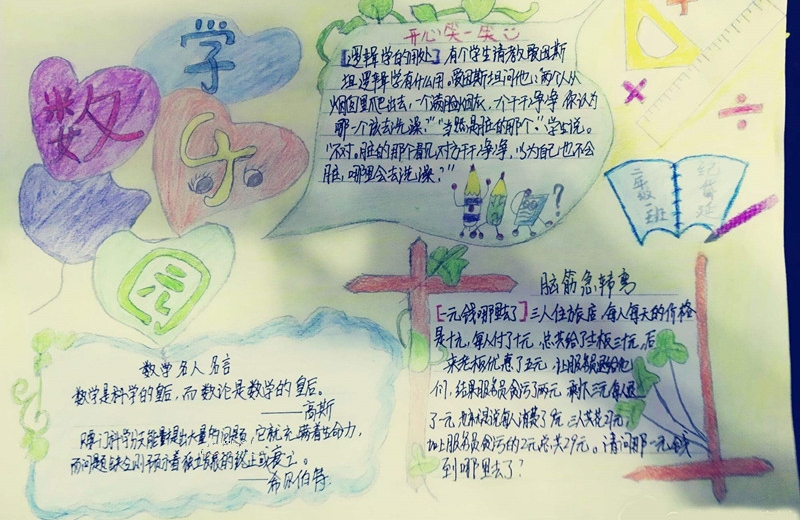 数
学
乐
园
开心笑一笑
[逻辑学的用处]有个学生请教爱因斯
坦逻辑学有什么用。爱因斯坦问他:“两个人从
烟囱里爬出去,一个满脸烟灰,一个干干净净,你认为
哪一个该去洗澡?”“当然是脏的那个。”学生说。
“不对,脏的那个看见对方干干净净,以为自己也不会
脏,哪里会去洗澡?”
?
二年级一班
纪
数学名人名言
数学是科学的皇后,而数论是数学的皇后。
——高斯
只要一门科学分支能提出大量的问题,它就充满着生命力,
而问题缺乏则预示着独立发展的终止或衰亡。
——希尔伯特
脑筋急转弯
[一元钱哪里去了]三人住旅店,每人每天的价格
是十元,每人付了十元,总共给了老板三十元,后
来老板优惠了五元,让服务员退给他
们,结果服务员贪污了两元,剩下三元每人退
了一元,也就是说每人消费了9元,三人共花27元,
加上服务员贪污的2元总共29元。请问那一元钱
到哪里去了?